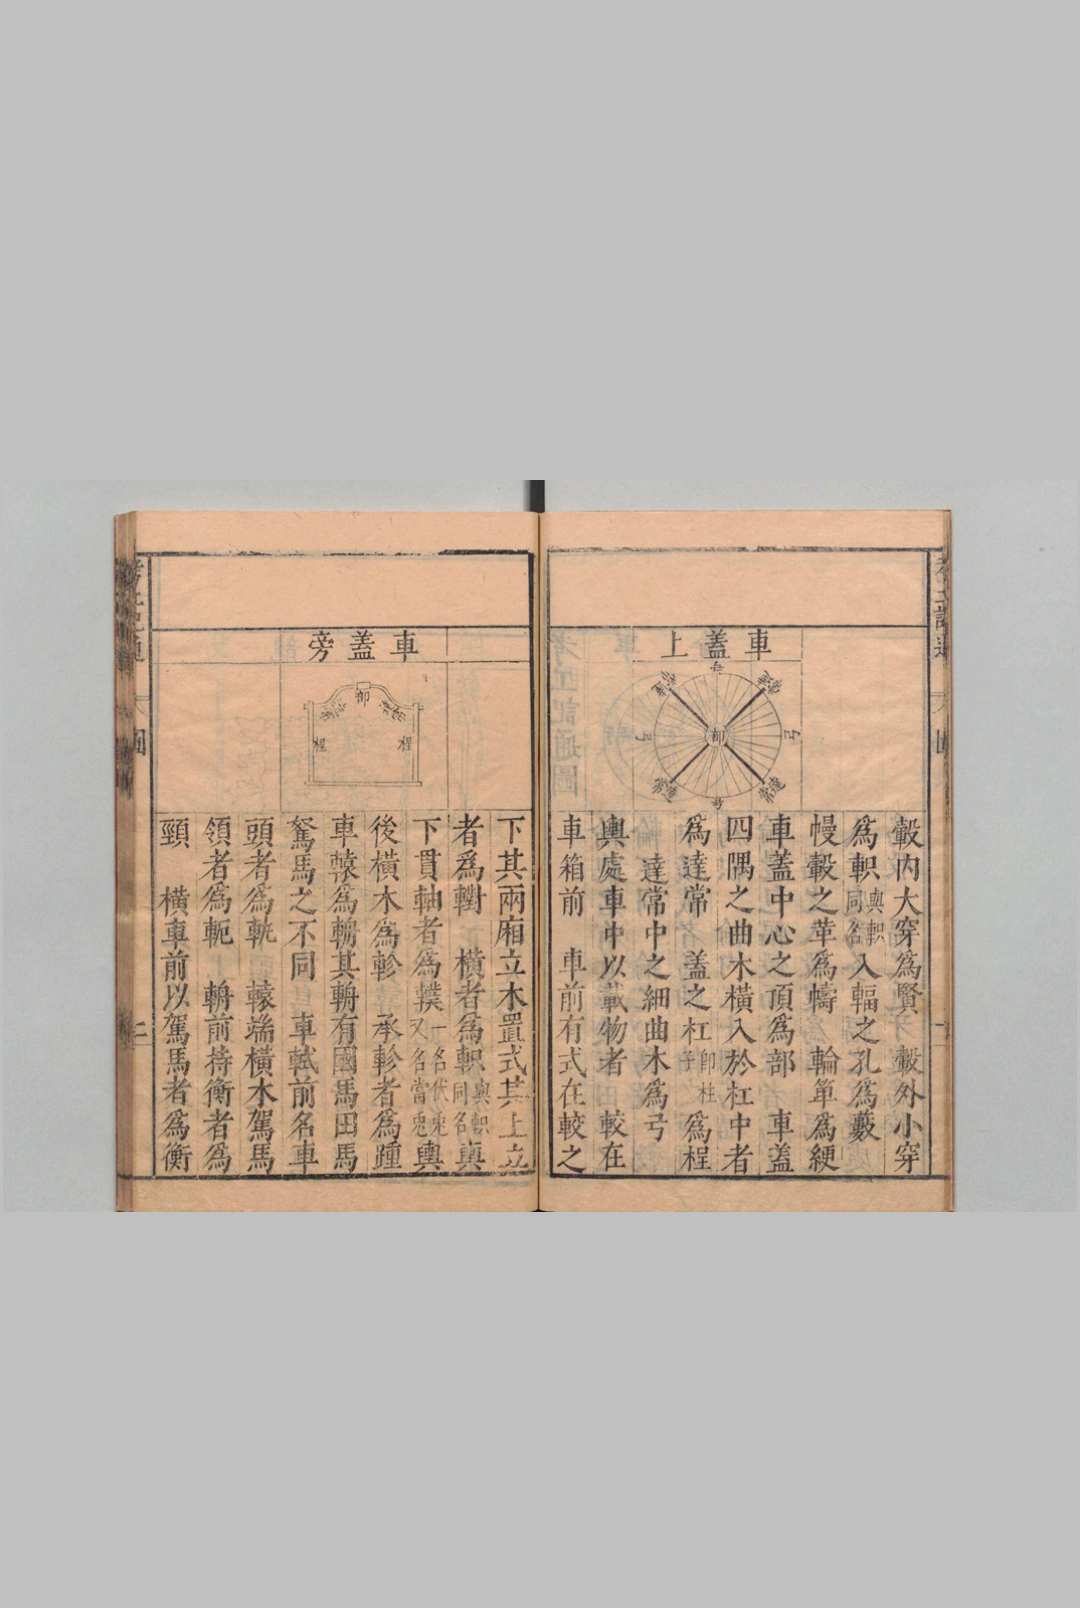 車蓋上
弓
弓
弓
弓
部
達常
達常
達常
達常
轂內大穿爲賢 轂外小穿
爲軹輿軹同名入輻之孔爲藪
幔轂之革爲幬 輪箄爲綆
車蓋中心之頂爲部 車蓋
四隅之曲木橫入於杠中者
爲達常 蓋之杠卽柱子爲桯
達常中之細曲木爲弓
輿處車中以載物者 較在
車箱前 車前有式在較之
車蓋旁
部
達常
達常
桯
桯
下其兩廂立木置式其上立
者爲轛 橫者爲軹輿軹同名輿
下貫軸者爲轐一名伏兎又名當兎輿
後橫木爲軫 承軫者爲踵
車轅爲輈其輈有國馬田馬
駑馬之不同 車軾前名車
頭者爲軏 轅端橫木駕馬
領者爲軛 輈前持衡者爲
頸 橫車前以駕馬者爲衡
考工記通
圖
二